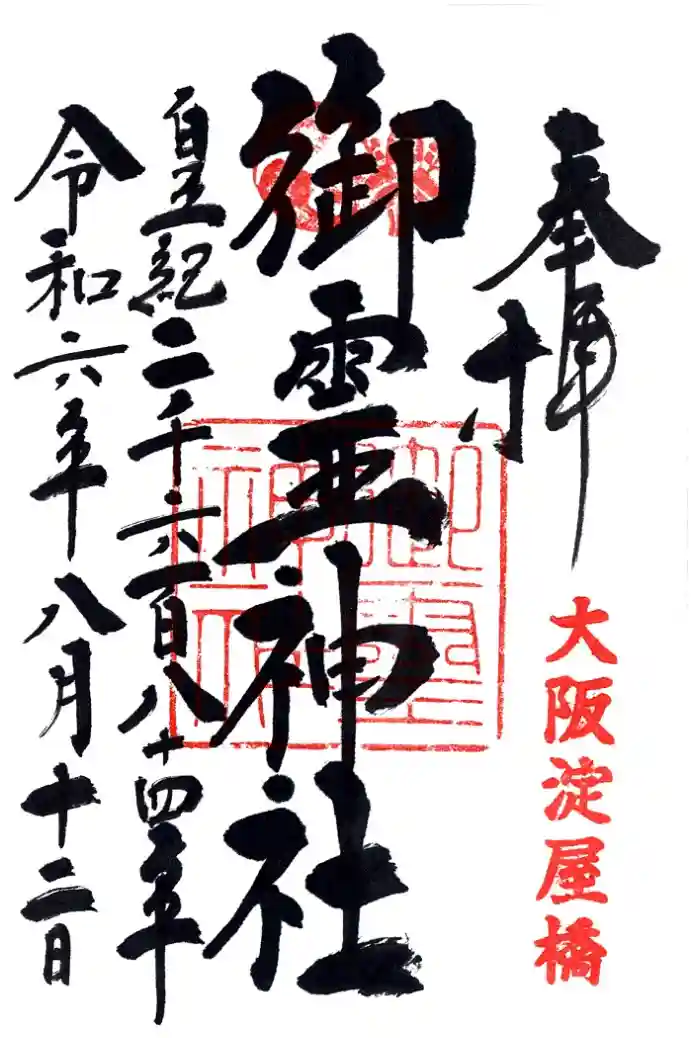 奉拝
大阪淀屋橋
御霊神社
御霊神社
皇紀二千六百八十四年
令和六年八月十二日